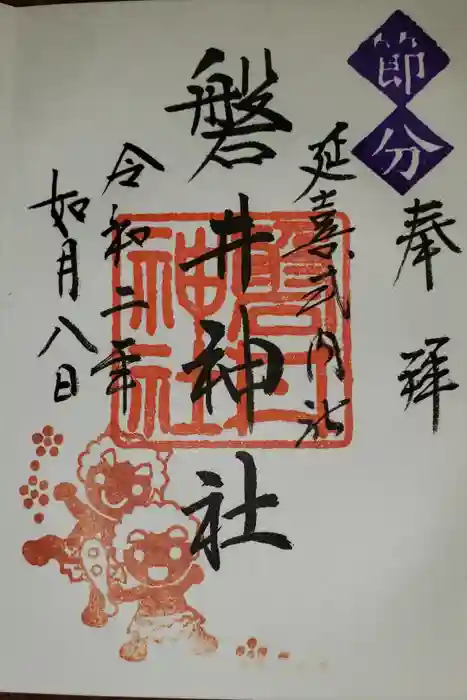 節分
奉拝
延喜式内社
磐井神社
磐井神社
令和二年
如月八日